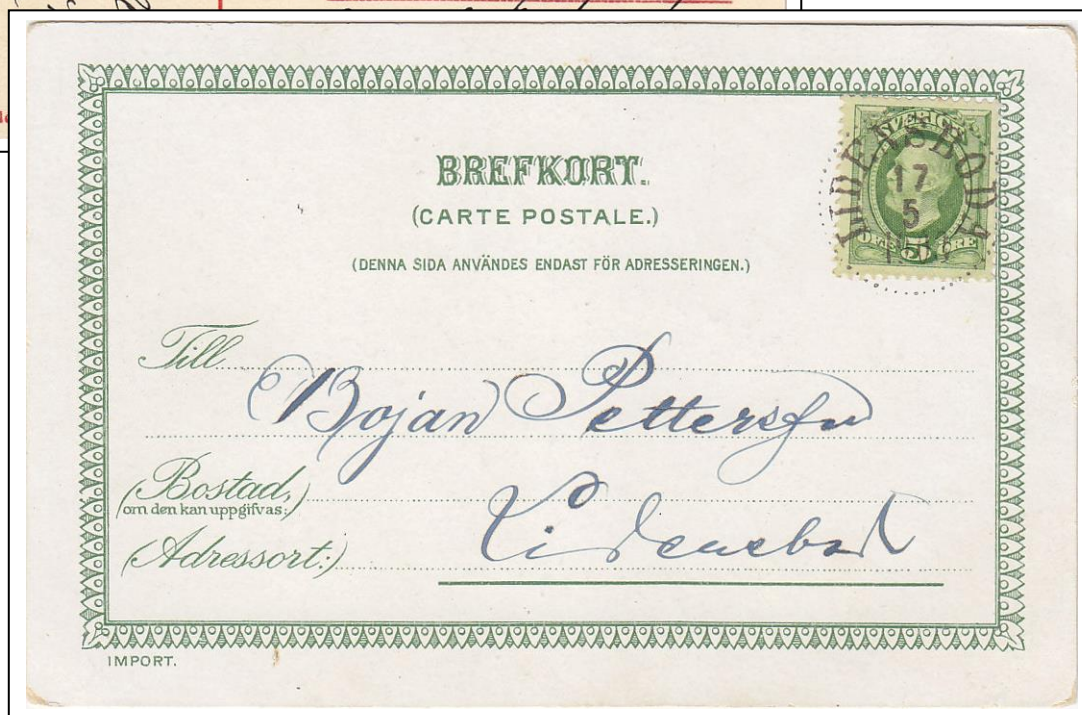 BREFKORT.
(CARTE POSTALE.)
(DENNA SIDA ANVÄNDES ENDAST FÖR ADRESSERINGEN.)
SVERIGE
LIDENSBODA
17
5
5
ÖRE
Till
Bojan Pettersson
(Bostad,)
om den kan uppgifvas:
Lidensbod
(Adressort:)
IMPORT.